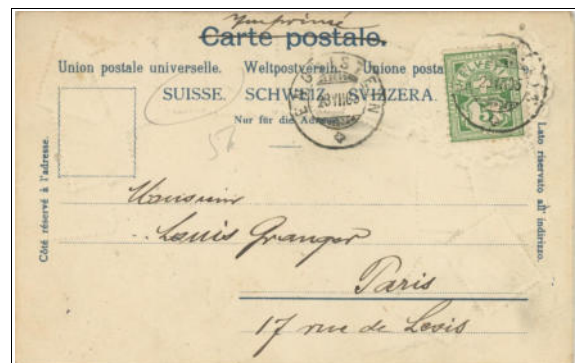 Imprimé
Carte postale.
Union postale universelle. Weltpostverein. Unione posta
SUISSE. SCHWEIZ. SVIZZERA.
Nur für die Ad
Côté réservé à l'adresse.
Lato riservato all' indirizzo.
HELVETIA
5
Monsieur
Louis Granger
Paris
17 rue de